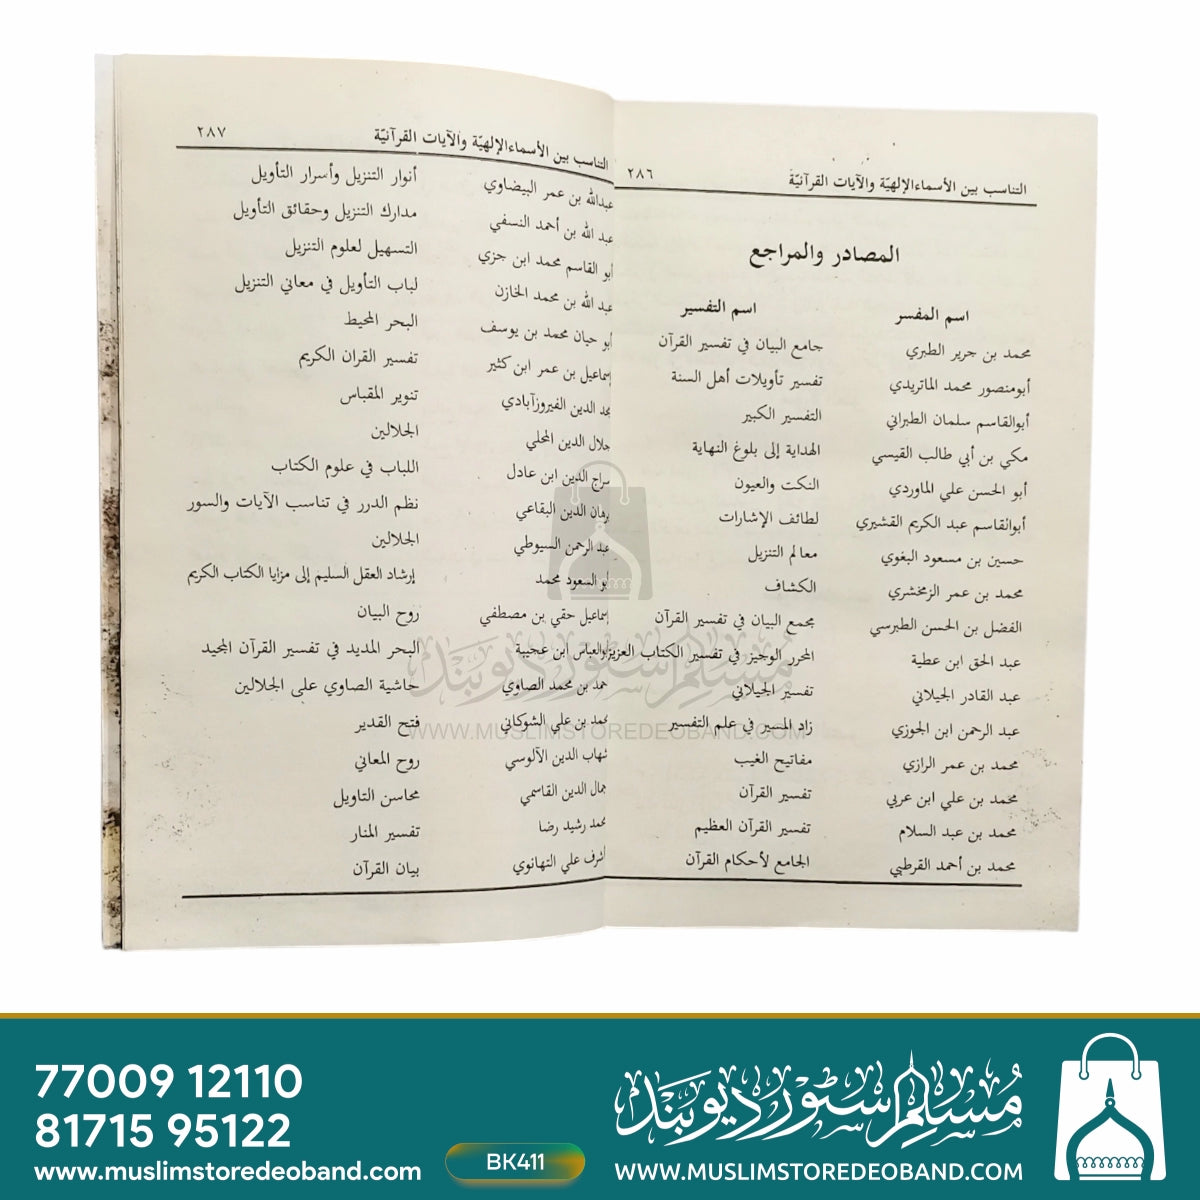 التناسب بين الأسماء الإلهيّة والآيات القرآنيّة ٢٨٦
المصادر والمراجع
اسم المفسر اسم التفسير
محمد بن جرير الطبري جامع البيان في تفسير القرآن
أبومنصور محمد الماتريدي تفسير تأويلات أهل السنة
أبوالقاسم سلمان الطبراني التفسير الكبير
مكي بن أبي طالب القيسي الهداية إلى بلوغ النهاية
أبو الحسن علي الماوردي النكت والعيون
أبوالقاسم عبد الكريم القشيري لطائف الإشارات
حسين بن مسعود البغوي معالم التنزيل
محمد بن عمر الزمخشري الكشاف
الفضل بن الحسن الطبرسي مجمع البيان في تفسير القرآن
عبد الحق ابن عطية المحرر الوجيز في تفسير الكتاب العزيز
عبد القادر الجيلاني تفسير الجيلاني
عبد الرحمن ابن الجوزي زاد المسير في علم التفسير
محمد بن عمر الرازي مفاتيح الغيب
محمد بن علي ابن عربي تفسير القرآن
محمد بن عبد السلام تفسير القرآن العظيم
محمد بن أحمد القرطبي الجامع لأحكام القرآن
التناسب بين الأسماء الإلهيّة والآيات القرآنيّة ٢٨٧
عبدالله بن عمر البيضاوي أنوار التنزيل وأسرار التأويل
عبد الله بن أحمد النسفي مدارك التنزيل وحقائق التأويل
أبو القاسم محمد ابن جزي التسهيل لعلوم التنزيل
عبد الله بن محمد الخازن لباب التأويل في معاني التنزيل
أبو حيان محمد بن يوسف البحر المحيط
إسماعيل بن عمر ابن كثير تفسير القران الكريم
مجد الدين الفيروزآبادي تنوير المقباس
جلال الدين المحلي الجلالين
سراج الدين ابن عادل اللباب في علوم الكتاب
برهان الدين البقاعي نظم الدرر في تناسب الآيات والسور
عبد الرحمن السيوطي الجلالين
أبو السعود محمد إرشاد العقل السليم إلى مزايا الكتاب الكريم
إسماعيل حقي بن مصطفي روح البيان
أبوالعباس ابن عجيبة البحر المديد في تفسير القرآن المجيد
أحمد بن محمد الصاوي حاشية الصاوي على الجلالين
محمد بن علي الشوكاني فتح القدير
شهاب الدين الآلوسي روح المعاني
جمال الدين القاسمي محاسن التاويل
محمد رشيد رضا تفسير المنار
أشرف علي التهانوي بيان القرآن
مسلم سٹور دیوبند
WWW.MUSLIMSTOREDEOBAND.COM
77009 12110
81715 95122
www.muslimstoredeoband.com
BK411
مسلم سٹور دیوبند
WWW.MUSLIMSTOREDEOBAND.COM